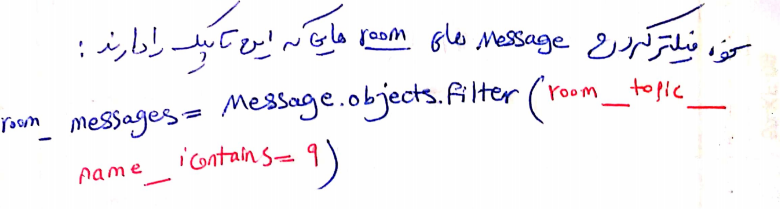 نحوه فیلتر کردن Message های room هایی که این تاپیک را دارند :
room_messages = Message.objects.filter(room__topic__
name__icontains= q)